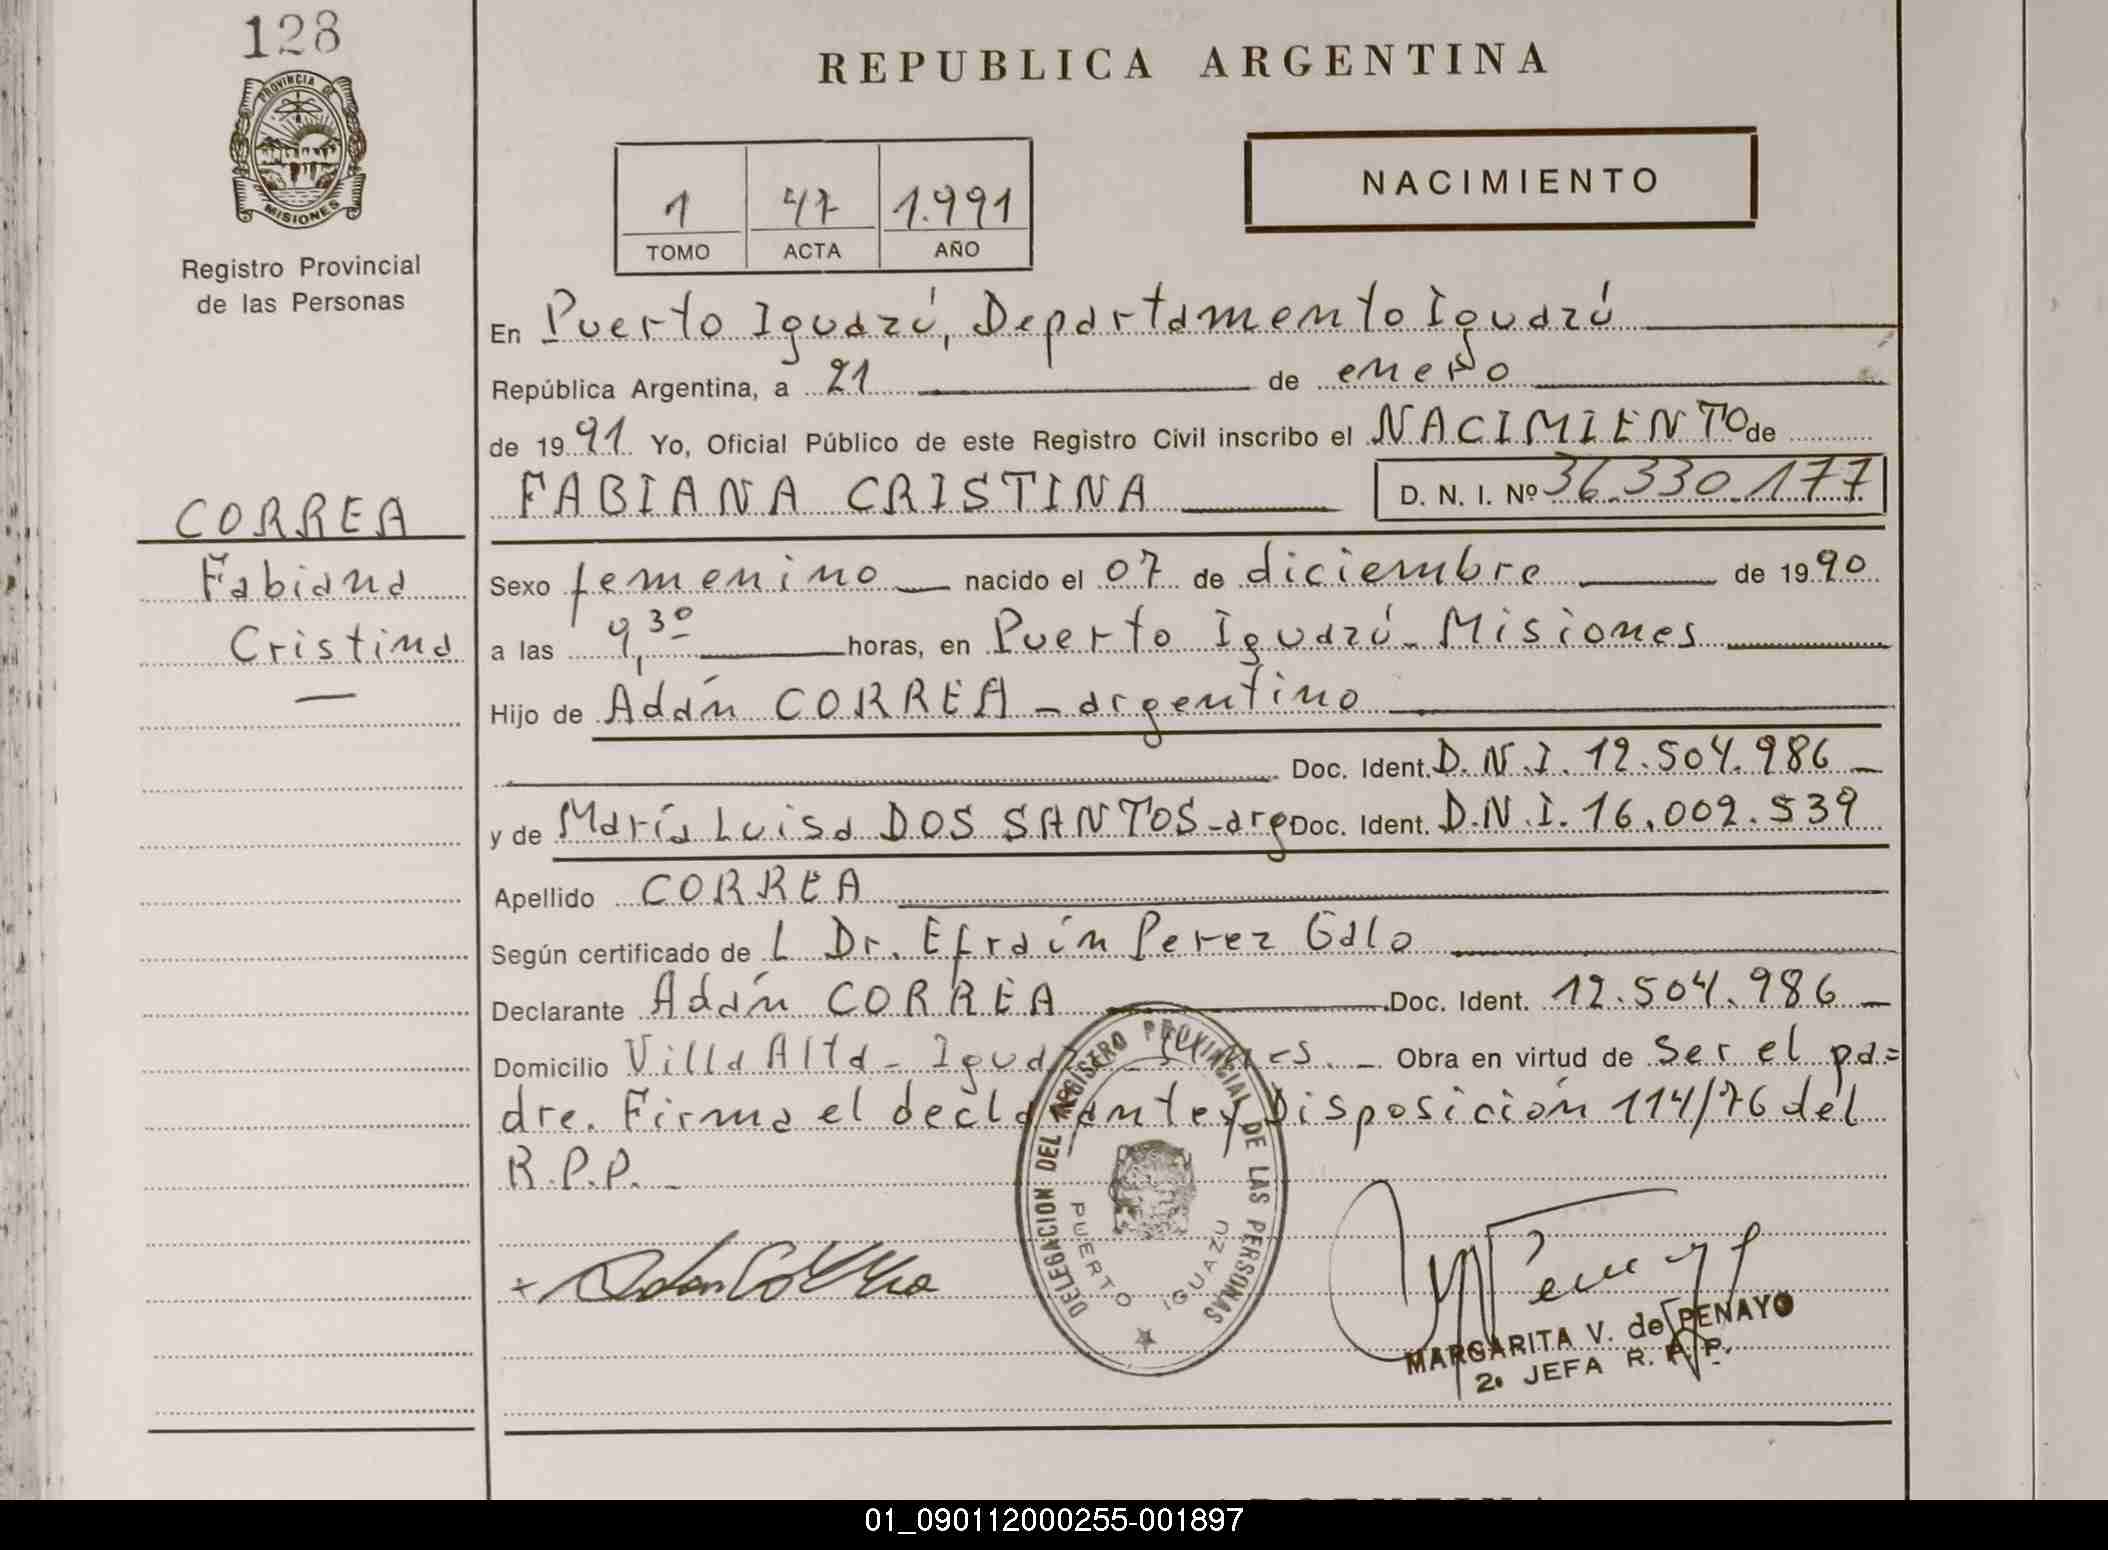 128
REPUBLICA ARGENTINA
PROVINCIA DE
MISIONES
Registro Provincial
de las Personas
NACIMIENTO
1 47 1.991
TOMO ACTA AÑO
En Puerto Iguazú, Departamento Iguazú
República Argentina, a 21 de enero
de 1991 Yo, Oficial Público de este Registro Civil inscribo el NACIMIENTO de
FABIANA CRISTINA D. N. I. Nº 36.330.177
CORREA
Fabiana
Cristina
Sexo femenino nacido el 07 de diciembre de 1990
a las 9,30 horas, en Puerto Iguazú - Misiones
Hijo de Adán CORREA - argentino
Doc. Ident. D.N.I. 12.504.986
y de María Luisa DOS SANTOS - arg Doc. Ident. D.N.I. 16.002.539
Apellido CORREA
Según certificado de L Dr. Efraín Perez Galo
Declarante Adán CORREA Doc. Ident. 12.504.986
Domicilio Villa Alta - Obra en virtud de ser el pa=
dre. Firma el declarante y Disposición 114/76 del
R.P.P.
DELEGACION DEL REGISTRO PROVINCIAL DE LAS PERSONAS
PUERTO IGUAZU
+ Adan Correa
MARGARITA V. de PENAYO
2º JEFA R. P. P.
01_090112000255-001897